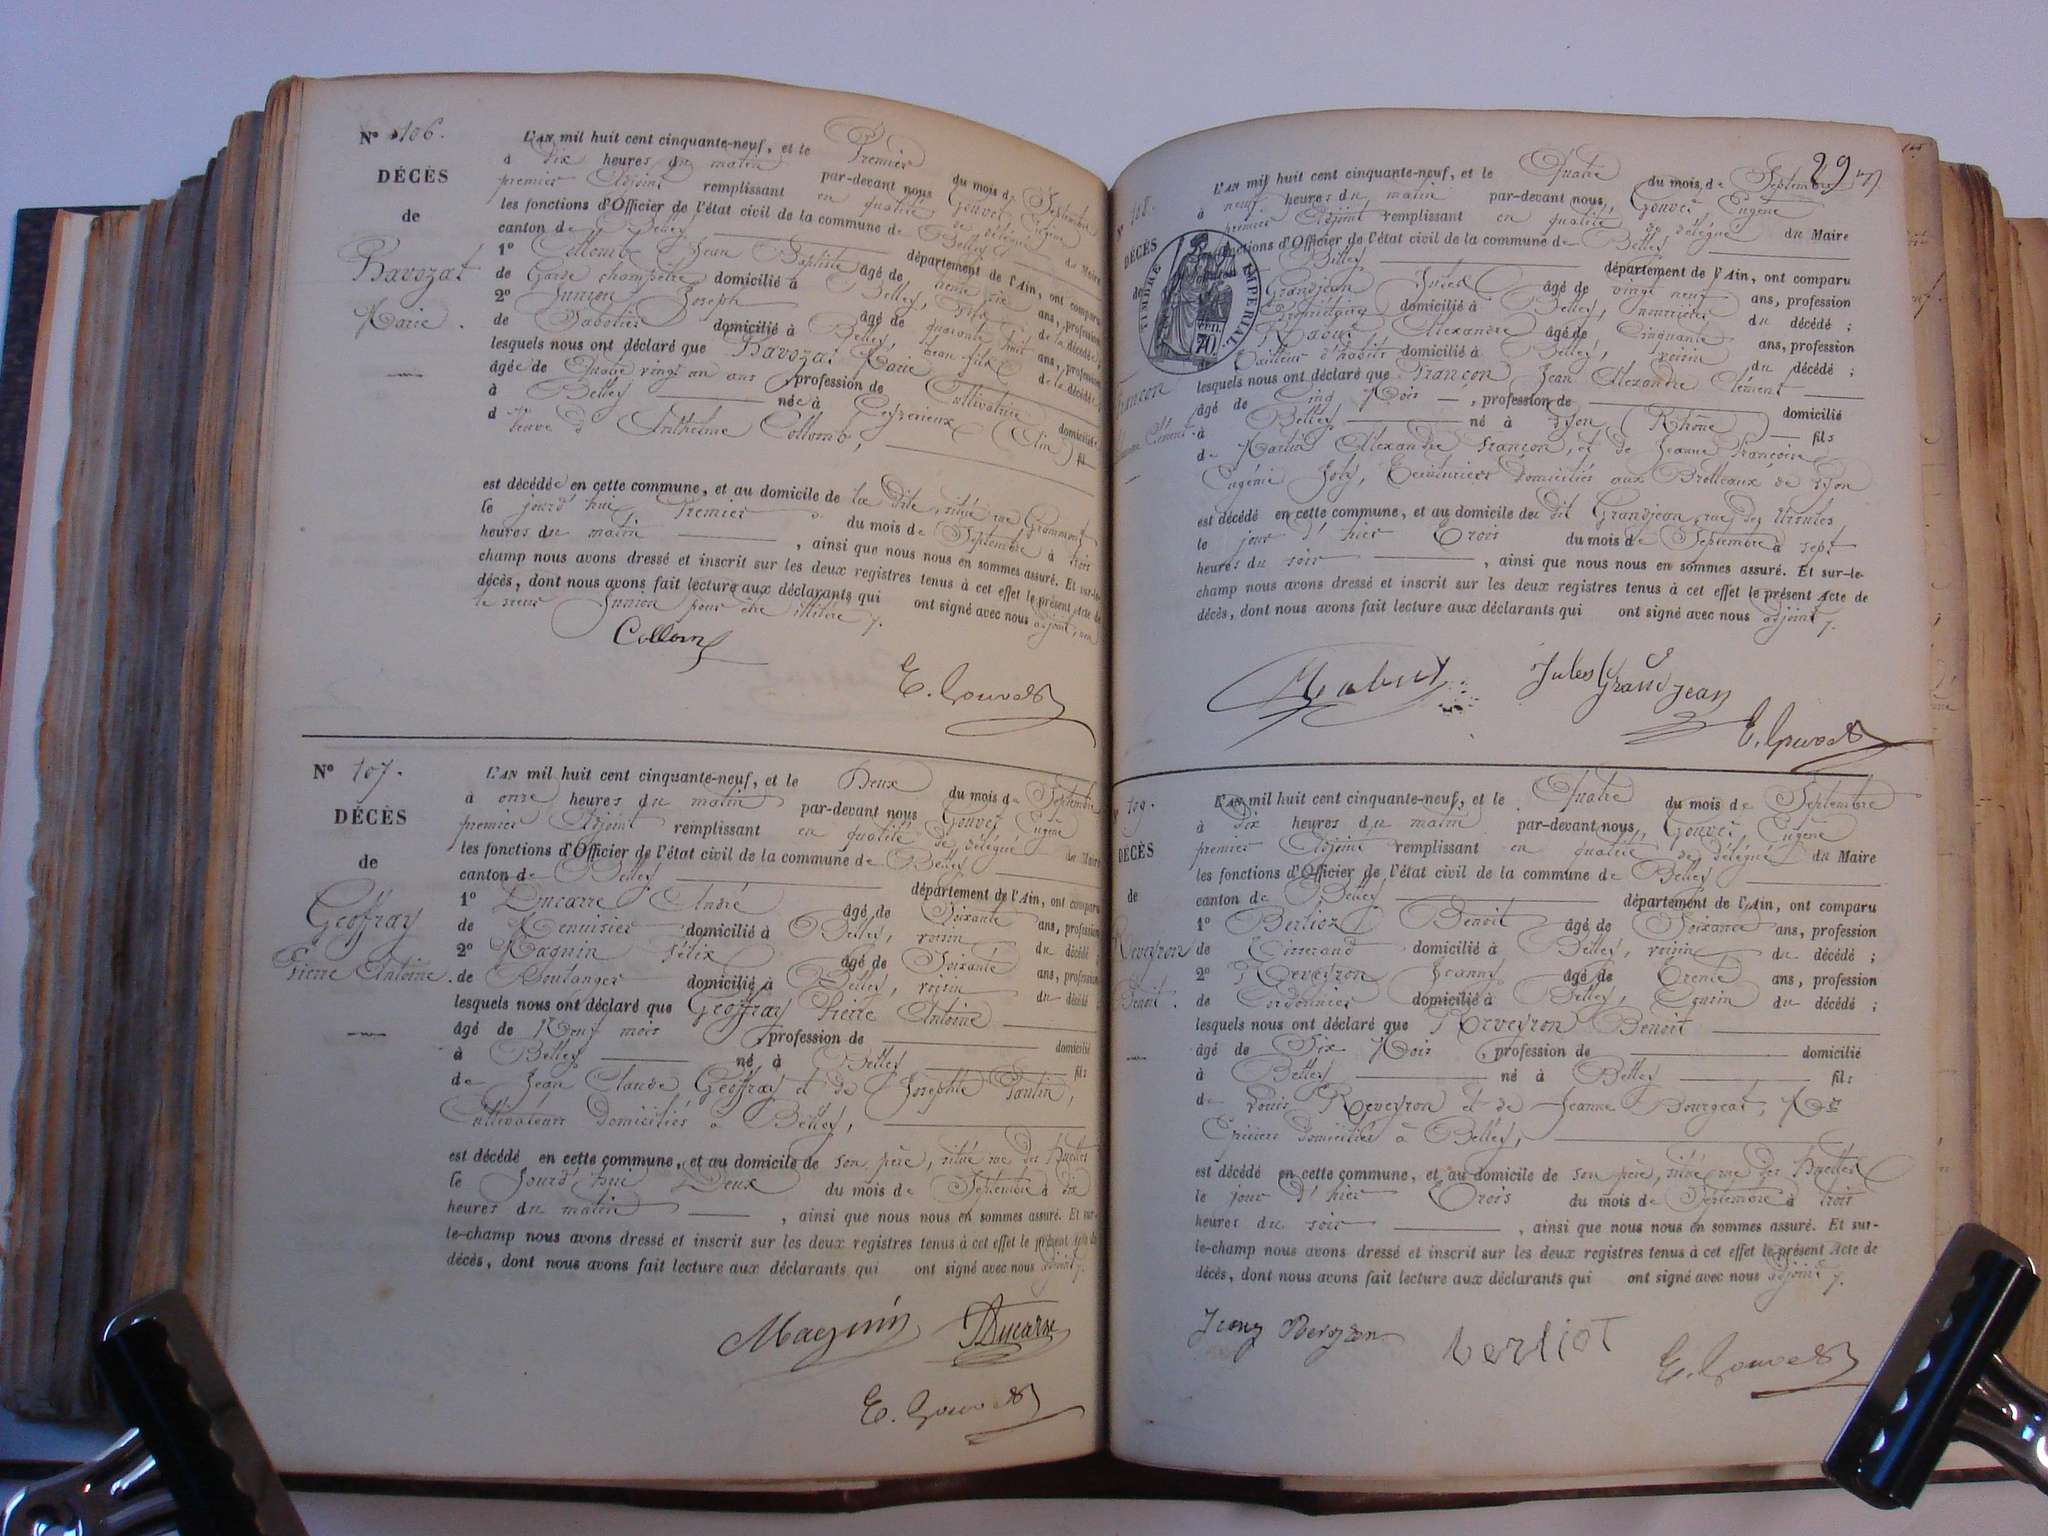 N° 106.
DÉCÈS
de
Havozat
Marie.
L'AN mil huit cent cinquante-neuf, et le Premier du mois de Septembre
à dix heures du matin par-devant nous Gouvet Eugène
premier Adjoint remplissant en qualité de délégué du Maire
les fonctions d'Officier de l'état civil de la commune de Belley
canton de Belley département de l'Ain, ont comparu
1° Collomb Jean Baptiste âgé de trente six ans, profession
de Garde champêtre domicilié à Belley, fils de la décédée;
2° Junion Joseph âgé de quarante huit ans, profession
de Sabotier domicilié à Belley, beau fils de la décédée;
lesquels nous ont déclaré que Havozat Marie
âgée de Quatre vingt un ans, profession de Cultivatrice domiciliée
à Belley née à Ceyzerieux (Ain) fil
d Veuve d'Anthelme Collomb,
est décédée en cette commune, et au domicile de la dite, situé rue Grammont
le jourd'hui Premier du mois de Septembre à trois
heures du matin, ainsi que nous nous en sommes assuré. Et sur-le-
champ nous avons dressé et inscrit sur les deux registres tenus à cet effet le présent Acte de
décès, dont nous avons fait lecture aux déclarants qui ont signé avec nous adjoint, non
le sieur Junion pour être illitéré.
Collomb
E. Gouvet
N° 107.
DÉCÈS
de
Geoffray
Pierre Antoine.
L'AN mil huit cent cinquante-neuf, et le Deux du mois de Septembre
à onze heures du matin par-devant nous Gouvet Eugène
premier Adjoint remplissant en qualité de délégué du Maire
les fonctions d'Officier de l'état civil de la commune de Belley
canton de Belley département de l'Ain, ont comparu
1° Ducarre André âgé de Soixante ans, profession
de Menuisier domicilié à Belley, voisin du décédé;
2° Magnin Félix âgé de Soixante ans, profession
de Boulanger domicilié à Belley, voisin du décédé;
lesquels nous ont déclaré que Geoffray Pierre Antoine
âgé de Neuf mois, profession de domicilié
à Belley né à Belley fils
de Jean Claude Geoffray et de Josephte Paulin,
Cultivateurs domiciliés à Belley,
est décédé en cette commune, et au domicile de son père, situé rue des Huttes
le Jourd'hui Deux du mois de Septembre à dix
heures du matin, ainsi que nous nous en sommes assuré. Et sur-
le-champ nous avons dressé et inscrit sur les deux registres tenus à cet effet le présent Acte de
décès, dont nous avons fait lecture aux déclarants qui ont signé avec nous adjoint.
Magnin Ducarre
E. Gouvet
29
108.
DÉCÈS
de
Françon
Clément.
TIMBRE IMPERIAL
70
L'AN mil huit cent cinquante-neuf, et le Quatre du mois de Septembre
à neuf heures du matin par-devant nous, Gouvet Eugène
premier Adjoint remplissant en qualité de délégué du Maire
fonctions d'Officier de l'état civil de la commune de Belley
Belley département de l'Ain, ont comparu
Grandjean Jules âgé de vingt neuf ans, profession
Propriétaire domicilié à Belley, nourricier du décédé;
Alexandre âgé de Cinquante ans, profession
de Tailleur d'habits domicilié à Belley, voisin du décédé;
lesquels nous ont déclaré que Françon Jean Alexandre Clément
âgé de Cinq Mois, profession de domicilié
à Belley né à Lyon (Rhône) fils
de Martin Alexandre Françon, et de Jeanne Françoise
Eugénie Joly, Teinturiers domiciliés aux Brotteaux de Lyon
est décédé en cette commune, et au domicile de dit Grandjean, rue des Ursules,
le jour d'hier Trois du mois de Septembre à sept
heures du soir, ainsi que nous nous en sommes assuré. Et sur-le-
champ nous avons dressé et inscrit sur les deux registres tenus à cet effet le présent Acte de
décès, dont nous avons fait lecture aux déclarants qui ont signé avec nous adjoint.
Jules Grandjean
E. Gouvet
109.
DÉCÈS
de
Reveyron
Benoit.
L'AN mil huit cent cinquante-neuf, et le Quatre du mois de Septembre
à Dix heures du matin par-devant nous, Gouvet, Eugène
premier Adjoint remplissant en qualité de délégué du Maire
les fonctions d'Officier de l'état civil de la commune de Belley
canton de Belley département de l'Ain, ont comparu
1° Berlioz Benoit âgé de Soixante ans, profession
de Tisserand domicilié à Belley, voisin du décédé;
2° Reveyron Jeany âgé de Trente ans, profession
de Cordonnier domicilié à Belley, Cousin du décédé;
lesquels nous ont déclaré que Reveyron Benoit
âgé de Six Mois, profession de domicilié
à Belley né à Belley fils
de Louis Reveyron et de Jeanne Bourgeat, Mds
Epiciers domiciliés à Belley;
est décédé en cette commune, et au domicile de son père, situé rue des Huttes
le jour d'hier Trois du mois de Septembre à trois
heures du soir, ainsi que nous nous en sommes assuré. Et sur-
le-champ nous avons dressé et inscrit sur les deux registres tenus à cet effet le présent Acte de
décès, dont nous avons fait lecture aux déclarants qui ont signé avec nous adjoint.
Jeany berlioT
E. Gouvet